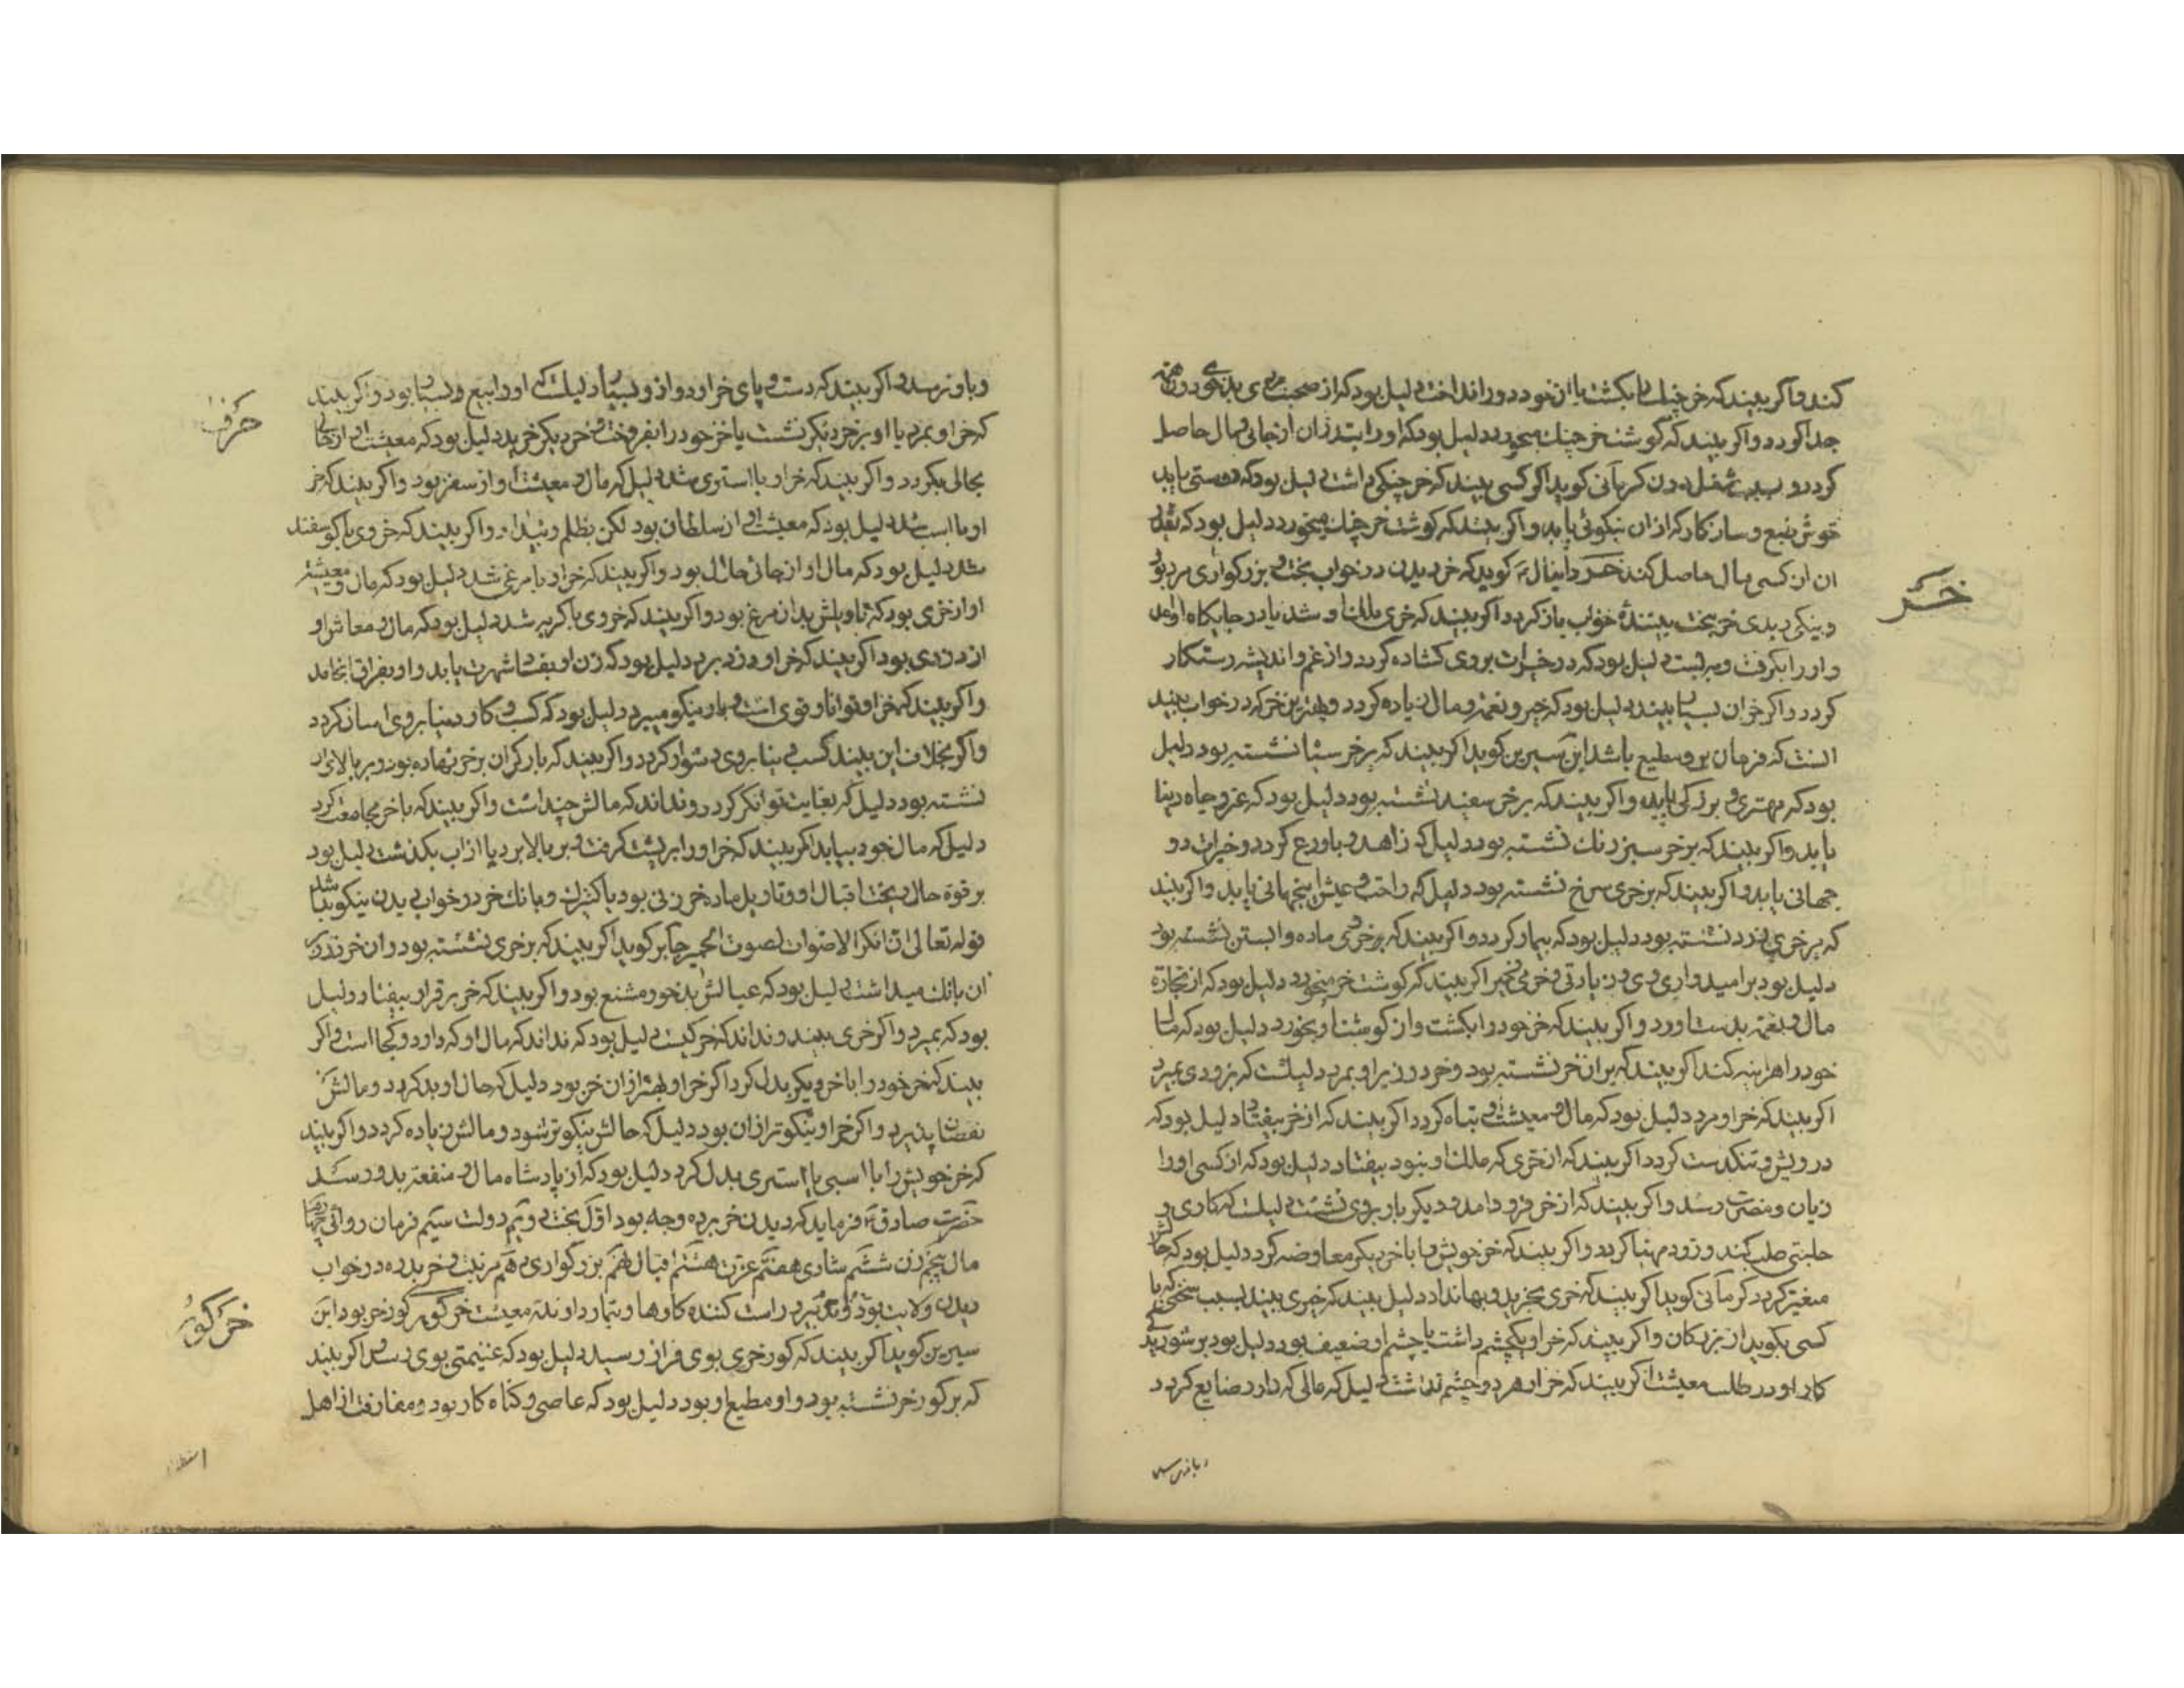 کند و اگر بیند که خرچنک را بکشت یا از خود دور انداخت دلیل بود که از صحبت مردی بدخوی دون همت
جدا کردد و اکر بیند که گوشت خرچنک میخورد دلیل بود که او را بتدر ان از جائی مال حاصل
کردد و کرمانی کوید اکر کسی بیند که خرچنکی داشت دلیل بود که دوستی یابد
خوش طبع و سازکار که از ان نیکوئی یابد و اکر بیند که کوشت خرچنک میخورد دلیل بود که بقدر
ان از کسی مال حاصل کند خر دانیال ع کوید که خر دیدن در خواب بخت و بزرکواری مرد بود
و نیکی و بدی خر بخت بینندهٔ خواب باز کردد اکر بیند که خری ملک او شد یا در جایکاه او امد
و او را بکرفت و ببست دلیل بود که در خیرات بر وی کشاده کردد و از غم و اندیشه رستکار
کردد و اکر خران بسیار بیند دلیل بود که خیر و نعمت و مال زیاده کردد و بهترین خر که در خواب بیند
انست که فرمان بر و مطیع باشد ابن سیرین کوید اکر بیند که بر خر سیاه نشسته بود دلیل
بود که مهتری و بزرکی یابد و اکر بیند که بر خر سفید نشسته بود دلیل بود که عز و جاه دنیا
یابد و اکر بیند که بر خر سبز رنک نشسته بود دلیل که زاهد و باورع کردد و خیرات دو
جهانی یابد و اکر بیند که بر خری سرخ نشسته بود دلیل که راحت و عیش اینجهانی یابد و اکر بیند
که بر خری زرد نشسته بود دلیل بود که بیمار کردد و اکر بیند که بر خری ماده و ابستن نشسته بود
دلیل بود بر امیدواری وی و زیارتی و خرمی خیر اکر بیند که کوشت خر میخورد دلیل بود که از تجارة
مال و نعمت بدست اورد و اکر بیند که خر خود را بکشت و از کوشت او بخورد دلیل بود که مال
خود را هزینه کند اکر بیند که بران خر نشسته بود و خر در زیر او بمرد دلیلست که بزودی بمیرد
اکر بیند که خر او مرد دلیل بود که مال و معیشت او تباه کردد اکر بیند که از خر بیفتاد دلیل بود که
درویش و تنکدست کردد اکر بیند که از خری که ملک او نبود بیفتاد دلیل بود که از کسی او را
زیان و مضرت رسد و اکر بیند که از خر فرود امد و دیکر بار بر وی نشست دلیلست که کاری و
حاجتی طلب کند و زود مهیا کردد و اکر بیند که خر خویش را با خر دیکر معاوضه کرد دلیل بود که حالش
متغیر کردد کرمانی کوید اکر بیند که خری بخرید و بها نداد دلیل بیند که خیری بیند بسبب سخنی که با
کسی بکوید از بزرکان و اکر بیند که خر او یکچشم داشت یا چشم او ضعیف بود دلیل بود بر شوریدکی
کار او در طلب معیشت اکر بیند که خر او هر دو چشم نداشت دلیل که مالی که دارد ضایع کردد
خر
و باو نرسد
و باو نرسد و اکر بیند که دست و پای خر او دو از و بسیار دلیلست که او را بیع و بسیار بود و اکر بیند
که خر او بمرد یا او بر خر دیکر نشست یا خر خود را بفروخت و خر دیکر خرید دلیل بود که معیشت او از حالی
بحالی بکردد و اکر بیند که خر او با استری شد دلیل که مال و معیشت او از سفر بود و اکر بیند که خر
او با اسب شد دلیل بود که معیشت او از سلطان بود لکن بظلم و بیداد و اکر بیند که خر وی با کوسفند
شد دلیل بود که مال او از جائی حلال بود و اکر بیند که خر او با مرغی شد دلیل بود که مال و معیشت
او از خری بود که تاویلش بدان مرغ بود و اکر بیند که خر وی با کربه شد دلیل بود که مال و معاش او
از دزدی بود اکر بیند که خر او دزد برد دلیل بود که زن او بفساد شهرت یابد و او بفراق انجامد
و اکر بیند که خر او توانا و قوی است و بار نیکو میبرد دلیل بود که کسب و کار دنیا بر وی اسان کردد
و اکر بخلاف این بیند کسب دنیا بر وی دشوار کردد و اکر بیند که بار کران بر خر نهاده بود و بر بالای ان
نشسته بود دلیل که بغایت توانکر کردد و نداند که مالش چنداست و اکر بیند که با خر مجامعت کرد
دلیل که مال خود بیابد اکر بیند که خر او را بر پشت کرفت و بر بالا برد یا از اب بکذشت دلیل بود
بر قوة حال و بخت و اقبال او و تاویل ماده خر زنی بود یا کنیزک و بانک خر در خواب دیدن نیکو نباشد
قوله تعالی ان انکر الاصوات لصوت الحمیر جابر کوید اکر بیند که بر خری نشسته بود و ان خر
ان بانک میداشت دلیل بود که عیالش بدخو و مشنع بود و اکر بیند که خر بر قرار بیفتاد دلیل
بود که بمیرد و اکر خری بیند و نداند که خر کیست دلیل بود که نداند که مال او که دارد و کجا است و اکر
بیند که خر خود را با خر دیکر بدل کرد اکر خر او بهتر از ان خر بود دلیل که حال او بد کردد و مالش
نقصان پذیرد و اکر خر او نیکوتر از ان بود دلیل که حالش نیکوتر شود و مالش زیاده کردد و اکر بیند
که خر خویش را با اسبی یا استری بدل کرد دلیل بود که از پادشاه مال و منفعت بدو رسد
حضرت صادق ع فرماید که دیدن خر بر ده وجه بود اول بخت دویم دولت سیم فرمان روائی چهارم
مال پنجم زن ششم شادی هفتم عزت هشتم اقبال نهم بزرکواری دهم مرتبت و خر بنده در خواب
دیدن ولایت بود و تدبیر و راست کننده کارها و تیماردارنده معیشت خر گور کور خر بود ابن
سیرین کوید اکر بیند که کور خری بوی فراز رسید دلیل بود که غنیمتی بوی رسد و اکر بیند
که بر کور خر نشسته بود و او مطیع او بود دلیل بود که عاصی و کناه کار بود و مفارقت از اهل
خر گور